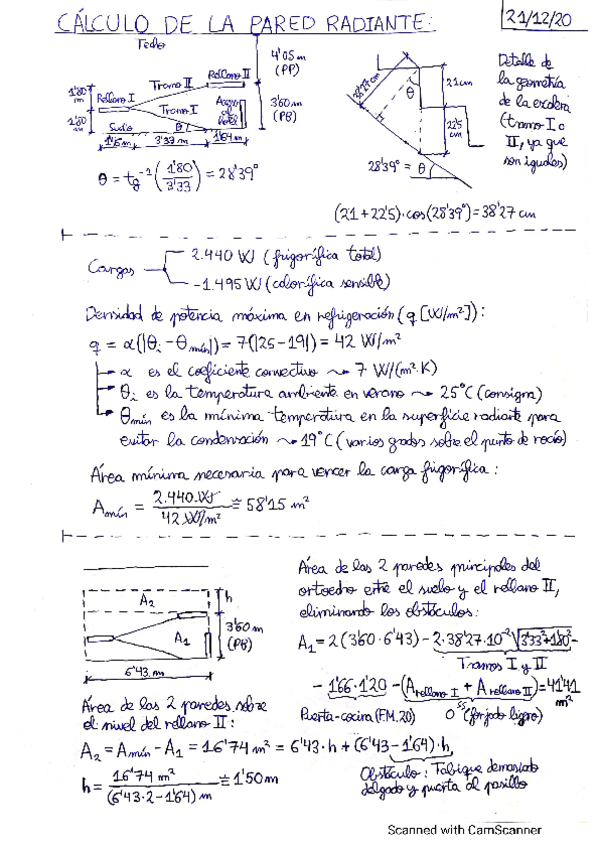 CÁLCULO DE LA PARED RADIANTE:
21/12/20
Techo
4'05 m
(PP)
Rellano II
Tramo II
1'80 m
Rellano I
Tramo I
3'60 m
(PB)
1'80 m
Suelo
θ
1'45 m
3'33 m
1'64 m
θ = tg⁻¹(1'80/3'33) = 28'39°
38'27 cm
θ
21 cm
22'5 cm
28'39° = θ
Detalle de
la geometría
de la escalera
(tramo I o
II, ya que
son iguales)
(21+22'5)·cos(28'39°)=38'27 cm
Cargas
2.440 W (frigorífica total)
-1.495 W (calorífica sensible)
Densidad de potencia máxima en refrigeración (q [W/m²]):
q = α(|θi - θmín|) = 7(|25-19|) = 42 W/m²
α es el coeficiente convectivo ⇝ 7 W/(m²·K)
θi es la temperatura ambiente en verano ⇝ 25°C (consigna)
θmín es la mínima temperatura en la superficie radiante para
evitar la condensación ⇝ 19°C (varios grados sobre el punto de rocío)
Área mínima necesaria para vencer la carga frigorífica:
Amín = 2.440 W / 42 W/m² ≅ 58'15 m²
A₂
h
A₁
3'60 m
(PB)
6'43 m
Área de las 2 paredes principales del
ortoedro entre el suelo y el rellano II,
eliminando los obstáculos:
A₁ = 2(3'60·6'43) - 2·38'27·10⁻²√(3'33²+1'80²) -
Tramos I y II
- 1'66·1'20 - (Arellano I + Arellano II) = 41'41 m²
Puerta-cocina (FM.20)
0 (forjado ligero)
Área de las 2 paredes sobre
el nivel del rellano II:
A₂ = Amín - A₁ = 16'74 m² = 6'43·h + (6'43-1'64)·h
h = 16'74 m² / (6'43·2-1'64) m ≅ 1'50 m
Obstáculo: Tabique demasiado
delgado y puerta al pasillo
Scanned with CamScanner